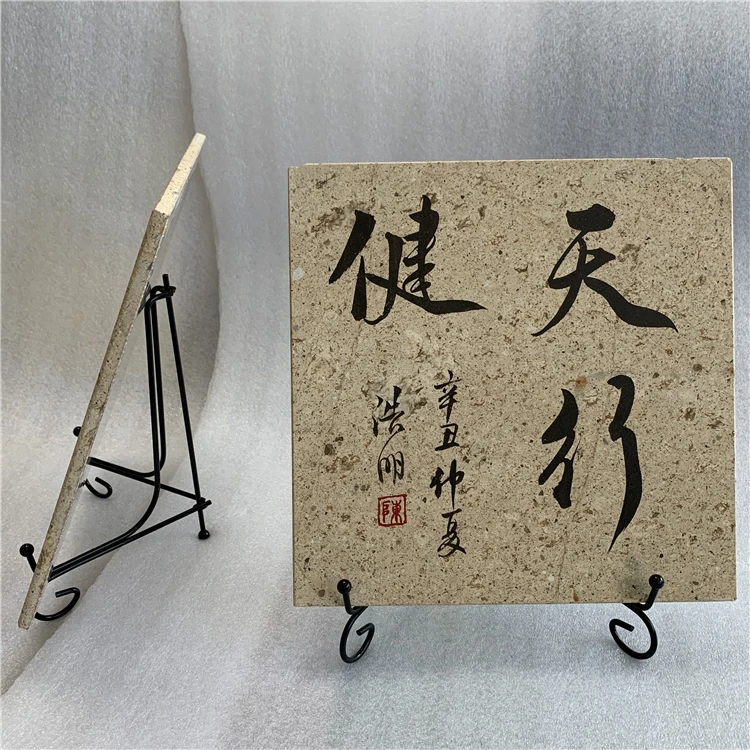 天行
健
辛丑仲夏
浩明
陳